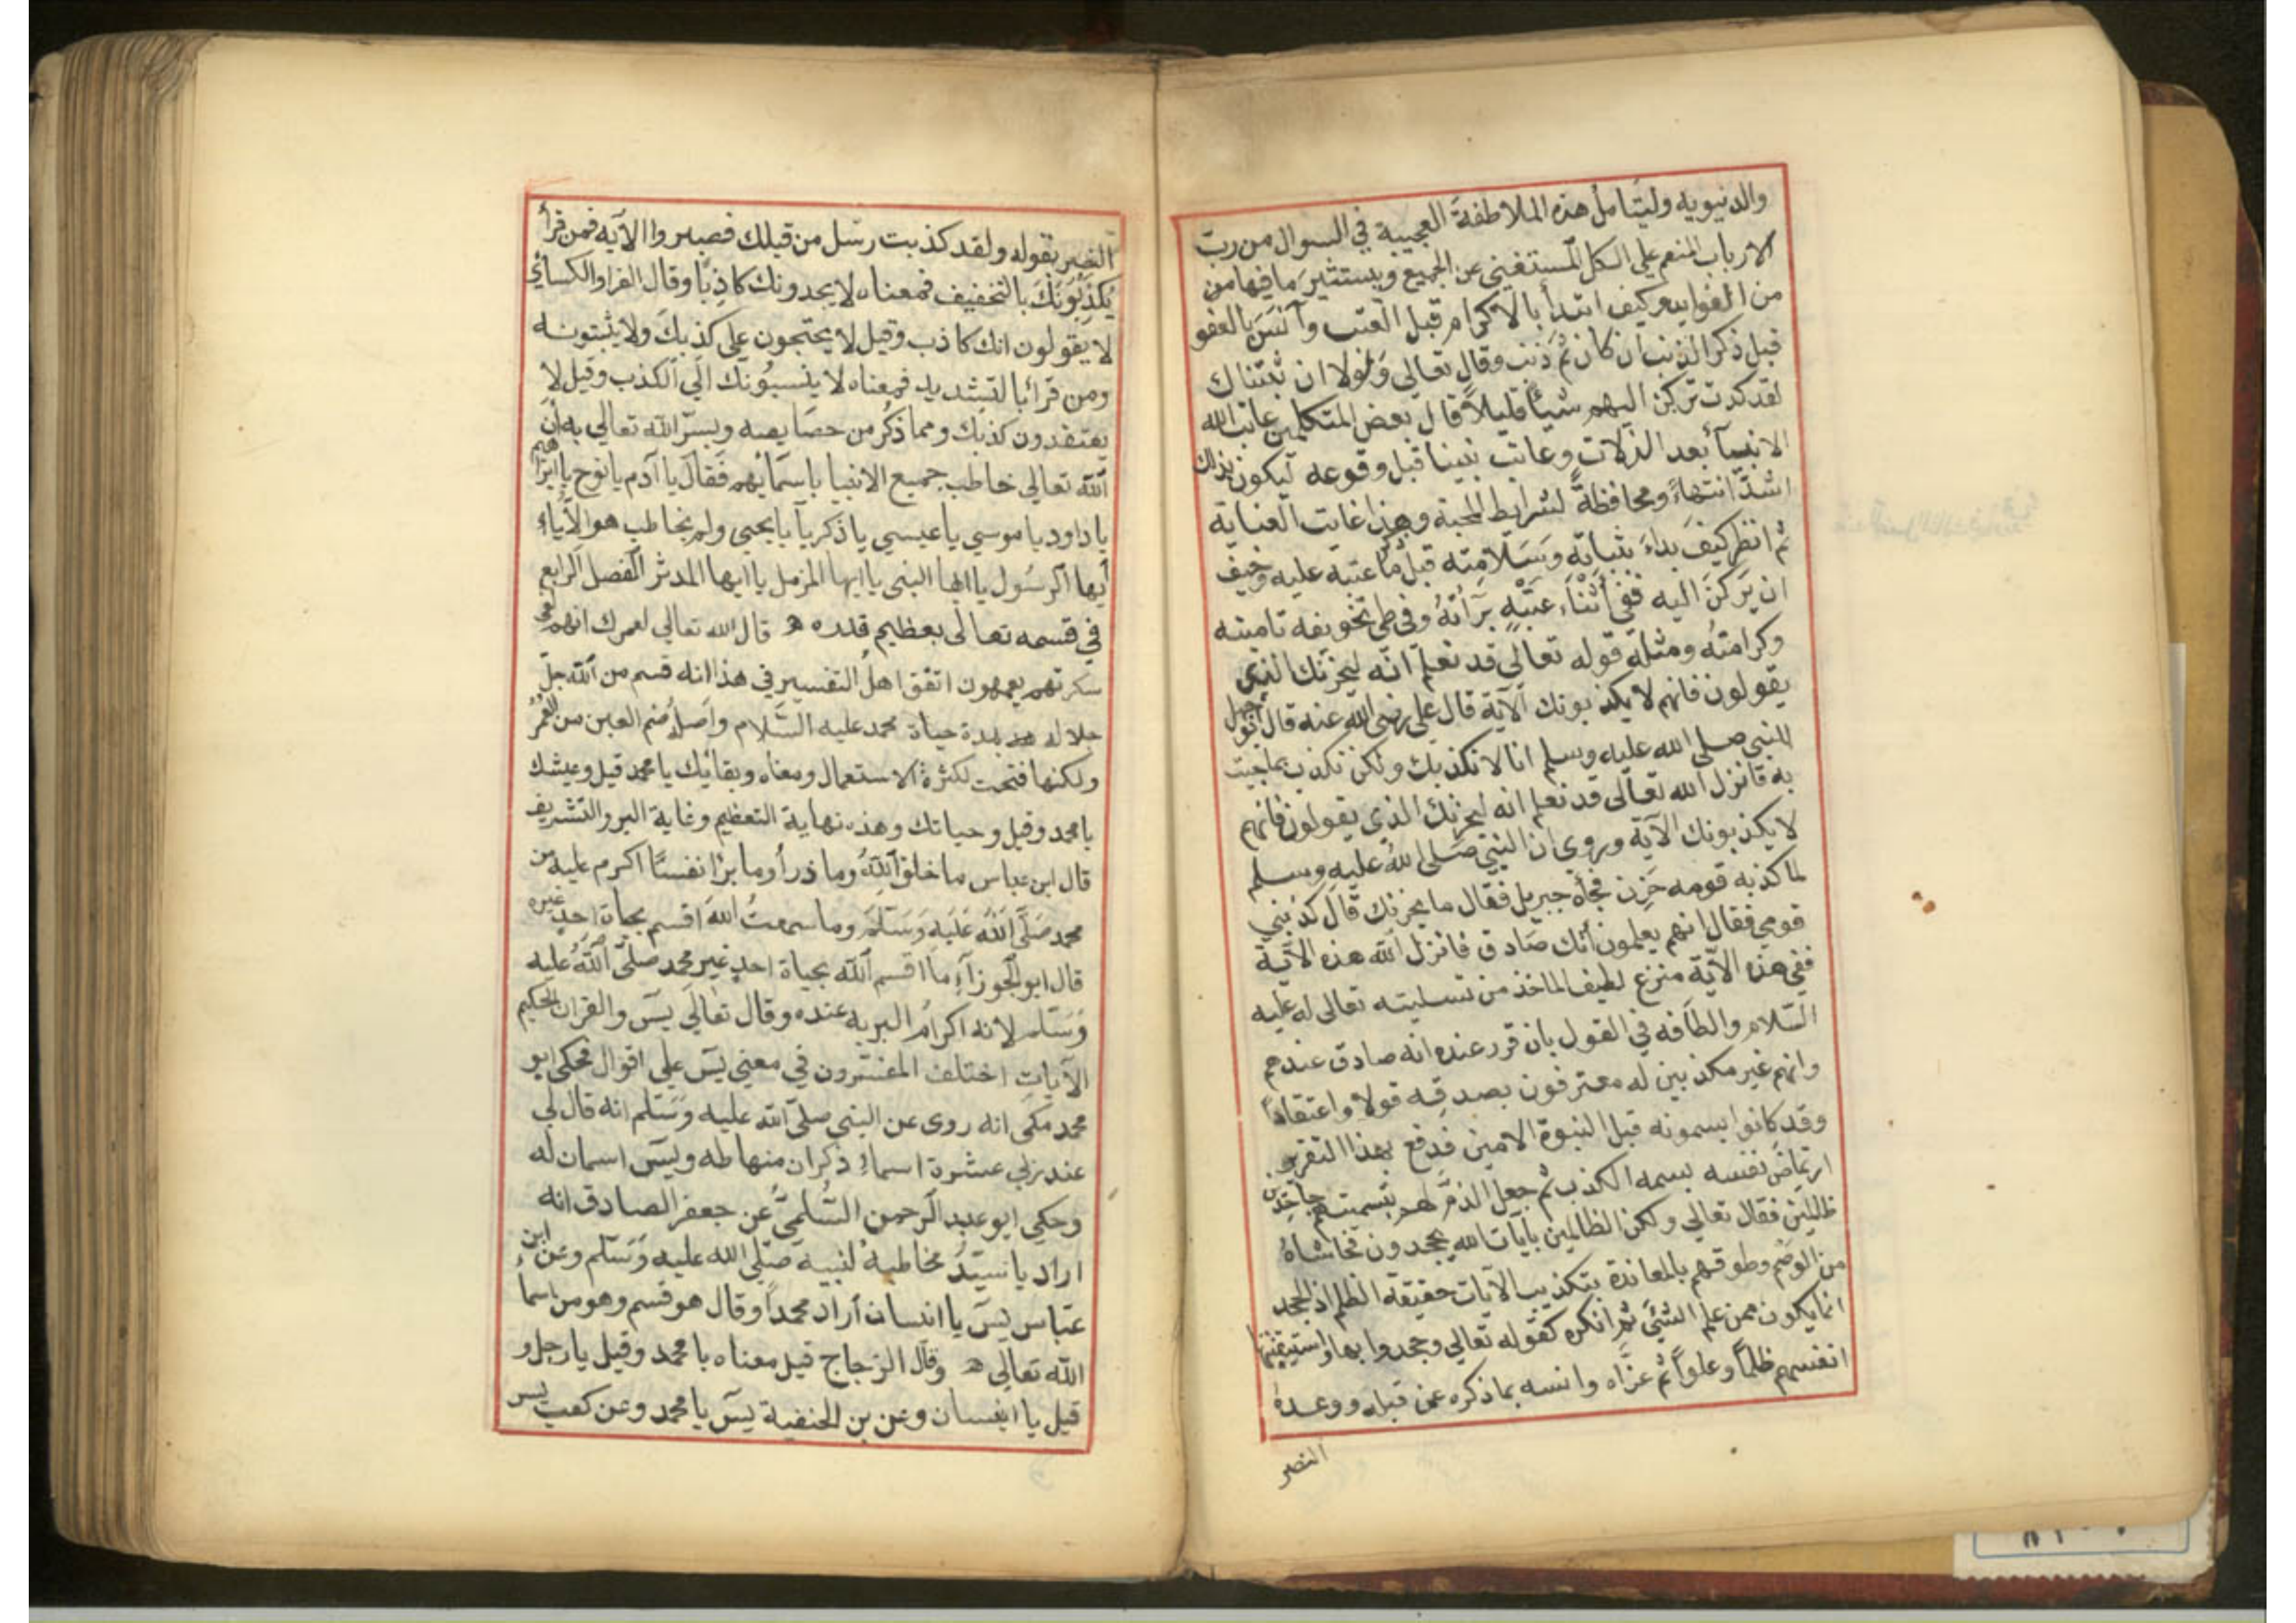 والدنيويه وليتامل هذه الملاطفة العجيبة في السوال من رب
الارباب المنعم على الكل المستغني عن الجميع ويستثير ما فيها من
من الفوايد وكيف ابتدأ بالاكرام قبل العتب وآنس بالعفو
قبل ذكر الذنب ان كان ثم ذنب وقال تعالي ولولا ان ثبتناك
لقد كدت تركن اليهم شيئا قليلا قال بعض المتكلمين عاتب الله
الانبيآء بعد الزلات وعاتب نبينا قبل وقوعه ليكون بذلك
اشد انتهاءً ومحافظةً لشرايط المحبة وهذه غايت العناية
ثم انظر كيف بداء بثباته وسلامته قبل ذكر ما عتبه عليه وخيف
ان يركن اليه ففي أثناء عتبه برآته وفي طي تخويفه تامينه
وكرامته ومثله قوله تعالى قد نعلم انه ليحزنك الذي
يقولون فانهم لا يكذبونك الآية قال علي رضي الله عنه قال ابو جهل
للنبي صلى الله عليه وسلم انا لا نكذبك ولكن نكذب بما جيت
به فانزل الله تعالى قد نعلم انه ليحزنك الذي يقولون فانهم
لا يكذبونك الآية وروي ان النبي صلى الله عليه وسلم
لما كذبه قومه حزن فجأه جبريل فقال ما يحزنك قال كذبني
قومي فقال انهم يعلمون أنك صادق فانزل الله هذه الآية
ففي هذه الآية منزع لطيف الماخذ من تسليته تعالى له عليه
السلام والطافه في القول بان قرر عنده انه صادق عندهم
وانهم غير مكذبين له معترفون بصدقه قولا واعتقاداً
وقد كانوا يسمونه قبل النبوة الامين فدفع بهذا التقرير
ارتماض نفسه بسمه الكذب ثم جعل الذم لهم بتسميتهم جاحدين
ظالمين فقال تعالي ولكن الظالمين بآيات الله يجحدون فحاشاه
من الوصم وطوقهم بالمعاندة بتكذيب الآيات حقيقة الظلم اذ الجحد
انما يكون ممن علم الشيئ ثم انكره كقوله تعالي وجحدوا بها واستيقنتها
انفسهم ظلماً وعلواً ثم عزاه وانسه بما ذكره عن قبله ووعده
النصر
النصر بقوله ولقد كذبت رسل من قبلك فصبروا الآيه فمن قرأ
يكذبونك بالتخفيف فمعناه لا يجدونك كاذبا وقال الفرا والكسائي
لا يقولون انك كاذب وقيل لا يحتجون علي كذبك ولا يثبتونه
ومن قرأ بالتشديد فمعناه لا ينسبونك الي الكذب وقيل لا
يعتقدون كذبك ومما ذكر من خصايصه وبر الله تعالي به أن
الله تعالي خاطب جميع الانبيا باسمائهم فقال يا آدم يا نوح يا ابراهيم
يا داود يا موسي يا عيسي يا زكريآ يا يحيي ولم يخاطب هو الا ياء
أيها الرسول يا ايها النبي يا ايها المزمل يا ايها المدثر الفصل الرابع
في قسمه تعالى بعظيم قدره ه قال الله تعالي لعمرك انهم لفي
سكرتهم يعمهون اتفق اهل التفسير في هذا انه قسم من الله جل
جلاله بمدة حياة محمد عليه السلام واصله ضم العين من العمر
ولكنها فتحت لكثرة الاستعمال ومعناه وبقائك يا محمد قيل وعيشك
يا محمد وقيل وحياتك وهذه نهاية التعظيم وغاية البر والتشريف
قال ابن عباس ما خلق الله وما ذرأ وما برا نفسا اكرم عليه من
محمد صلى الله عليه وسلم وما سمعت الله اقسم بحياة احد غيره
قال ابو الجوزآء ما اقسم الله بحياة احد غير محمد صلى الله عليه
وسلم لانه اكرام البريه عنده وقال تعالي يس والقران الحكيم
الآيات اختلف المفسرون في معني يس علي اقوال فحكى ابو
محمد مكي انه روى عن النبي صلى الله عليه وسلم انه قال لي
عند ربي عشرة اسماء ذكر ان منها طه ويس اسمان له
وحكي ابو عبد الرحمن السلمي عن جعفر الصادق انه
اراد يا سيد مخاطبة لنبيه صلى الله عليه وسلم وعن ابن
عباس يس يا انسان أراد محمدا وقال هو قسم وهو من اسما
الله تعالي ه وقال الزجاج قيل معناه يا محمد وقيل يا رجل و
قيل يا انسان وعن بن الحنفية يس يا محمد وعن كعب يس